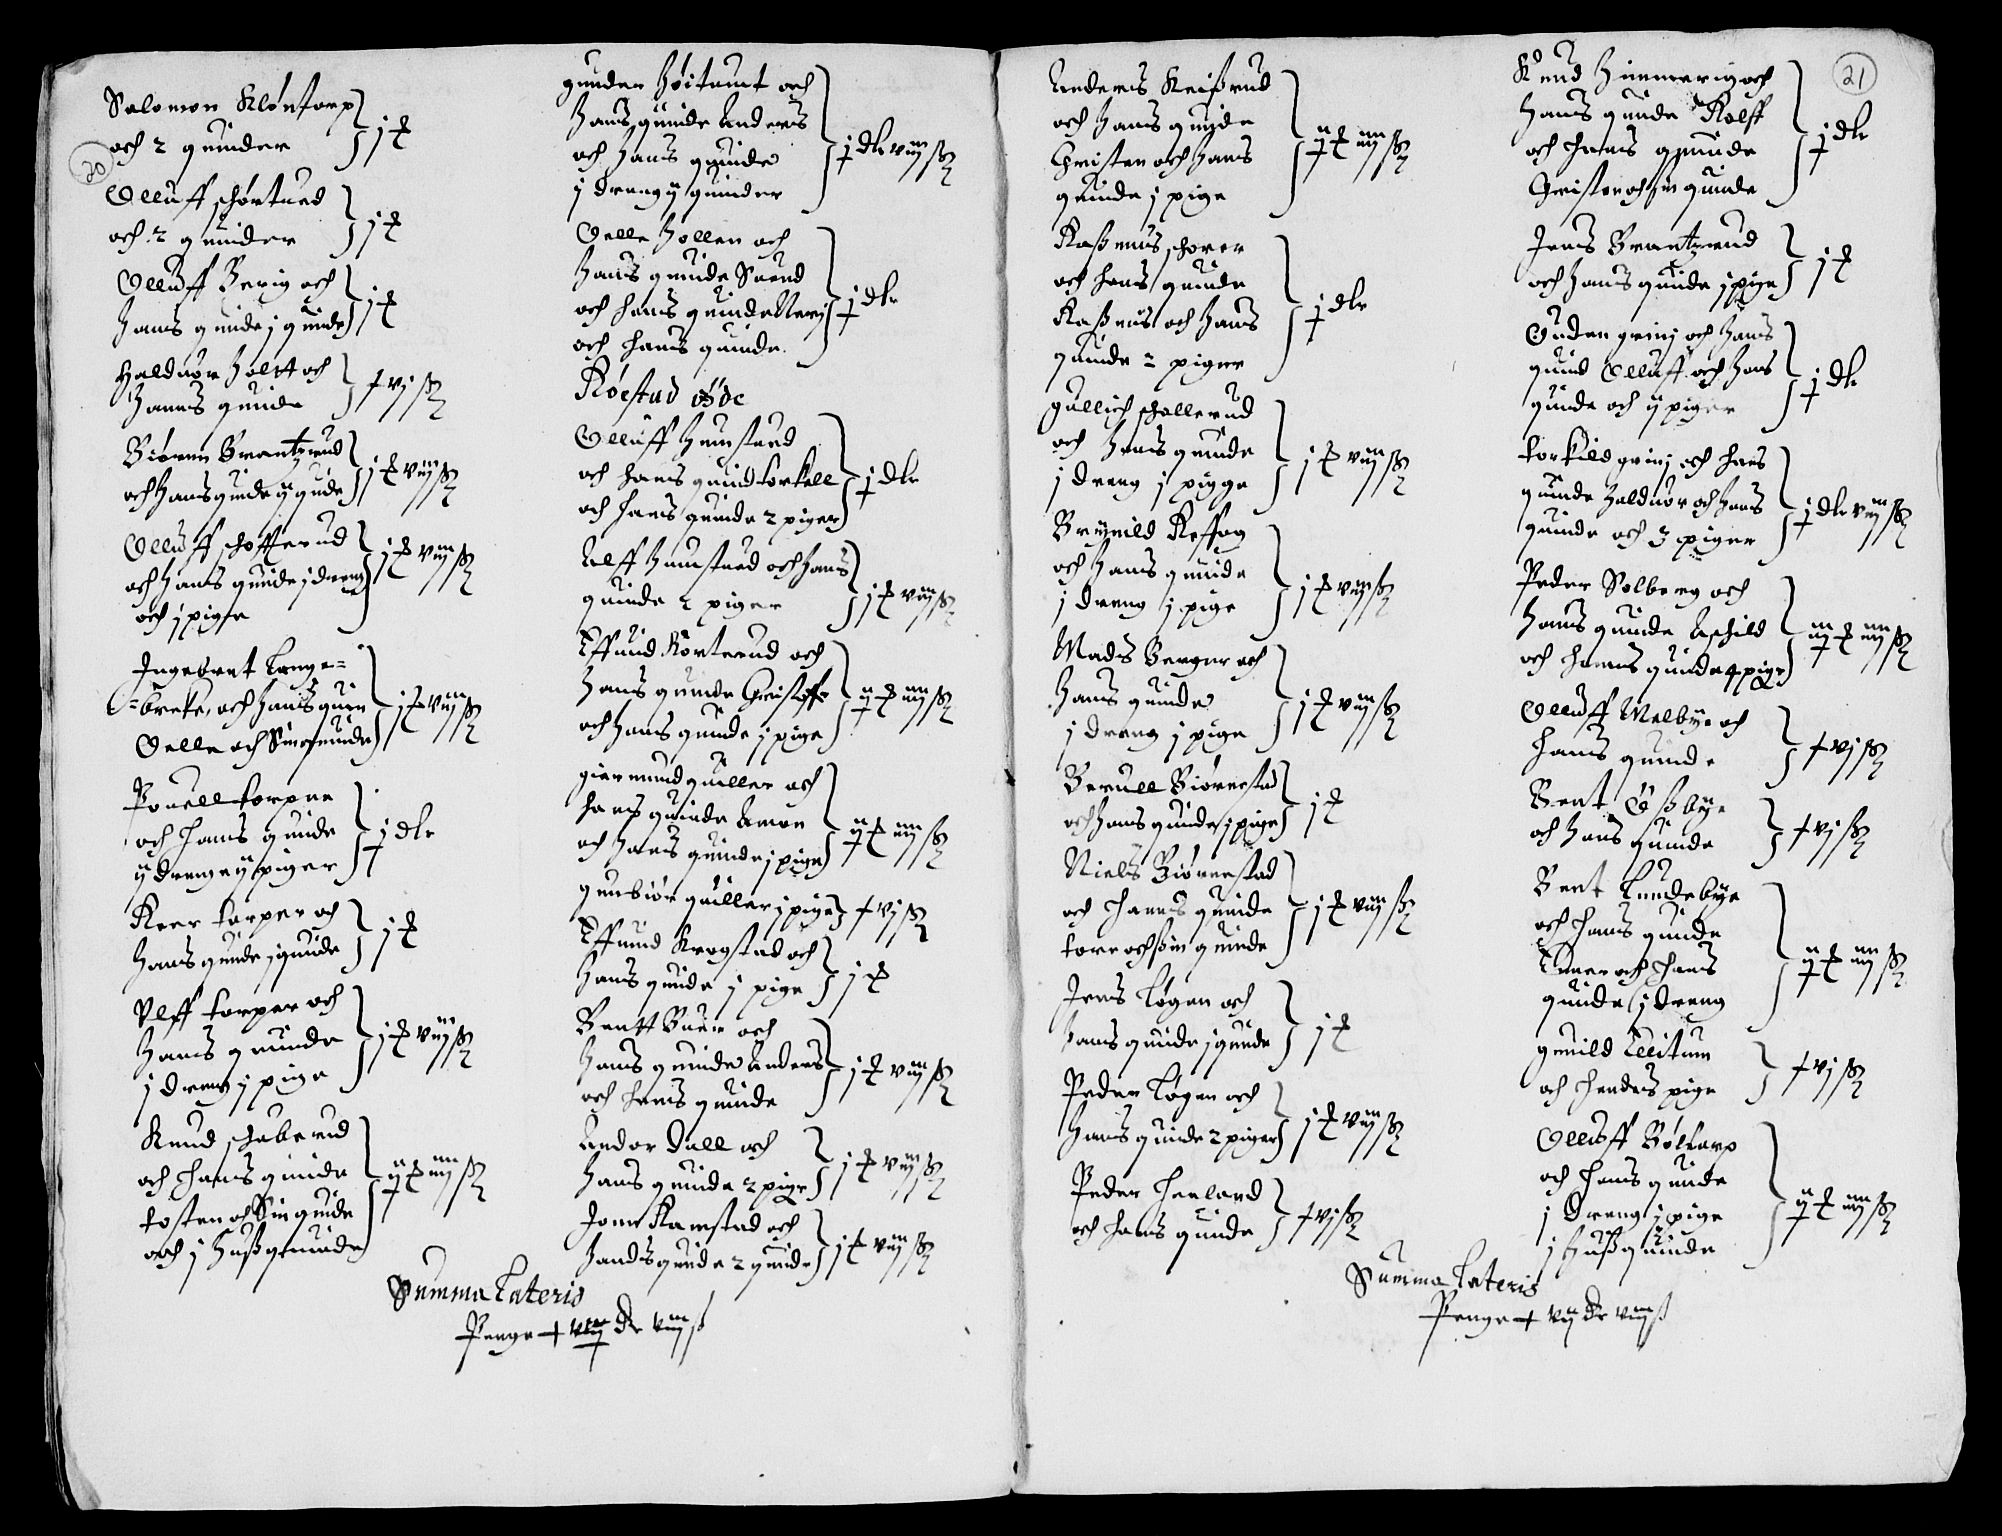 20
Salomon Kløntorp
och 2 quinder } j ꝑ
Olluff schørtued
och 2 quinder } j ꝑ
Olluff Berig och
hans quinde j quinde } j ꝑ
Haldvor Holtt och
hanns quinde } vj ß
Biørnn Brantzrud
och hans quinde ij quinde } j ꝑ viij ß
Olluff schotterud
och hans quinde j dreng
och j pige } j ꝑ viij ß
Ingebret Lange=
=breke, och hans quin
Oelle och Sin quinde } j ꝑ viij ß
Pouell torpne
och hans quinde
ij drenge ij piger } j dlr
Keer torper och
hans quinde j quinde } j ꝑ
Ulff torper och
hans quinde
j dreng j pige } j ꝑ viij ß
Knud schaberud
och hans quinde
tosten och Sin quinde
och j hußquinde } ij ꝑ iiij ß
gunder Høitomt och
hans quinde Anders
och hans quinde
j dreng ij quinder } j dlr viij ß
Oelle Hollen och
hans quinde Suend
och hans quinde Verj
och hans quinde } j dlr
Røestad øde
Olluff Humstued
och hans quind torkell
och hans quinde 2 piger } j dlr
Alff Humstued och hans
quinde 2 piger } j ꝑ viij ß
Effuind Korterud och
hans quinde Christoffr
och hans quinde j pige } ij ꝑ iiij ß
giermund quiller och
hans quinde Amon
och hans quinde j pige } ij ꝑ iiij ß
gunbiør quiller j pige } vj ß
Effuind Krogstad och
hans quinde j pige } j ꝑ
Bentt Buer och
hans quinde Anders
och hans quinde } j ꝑ viij ß
Andor Dall och
hans quinde 2 pige } j ꝑ viij ß
Jonn Ramstad och
hands quinde 2 quinde } j ꝑ viij ß
Summa Lateris
Penge viij dr viij ß
21
Anders Keißrud
och hans quinde
Christen och hans
quinde j pige } ij ꝑ iiij ß
Raßmus schorer
och hans quinde
Raßmus och hans
quinde 2 piger } j dlr
gullich schallerud
och hans quinde
j dreng j pigge } j ꝑ viij ß
Brynild Reffog
och hans quinde
j dreng j pige } j ꝑ viij ß
Mads Berger och
hans quinde
j dreng j pige } j ꝑ viij ß
Beruell Biørnestad
och hans quinde j pige } j ꝑ
Niels Biørnestad
och hanns quinde
tore och sin quinde } j ꝑ viij ß
Jens Løgen och
hans quinde j quinde } j ꝑ
Peder Løgen och
hans quinde 2 piger } j ꝑ viij ß
Peder Haaland
och hans quinde } vj ß
Knud Himmerig och
hans quinde Rolff
och hans quinde
Christen och sin quinde } j dlr
Jens Brantzrud
och hans quinde j pige } j ꝑ
Guden grinj och hans
quind Olluff och hans
quinde och ij piger } j dlr
torkild grinj och hans
quinde Haldvor och hans
quinde och 3 piger } j dlr viij ß
Peder Solberg och
hans quinde Aschild
och hanns quinde 4 pige } iij ꝑ iiij ß
Olluff Melbye och
hans quinde } vj ß
Bent Oßbye
och hans quinde } vj ß
Bent Lundebye
och hans quinde
Einer och hans
quinde j dreng } ij ꝑ iiij ß
gunild Ellitum
och hendes pige } vj ß
Olluff Boltorp
och hans quinde
j dreng j pige
j hußquinde } ij ꝑ iiij ß
Summa Lateris
Penge vij dr viij ß